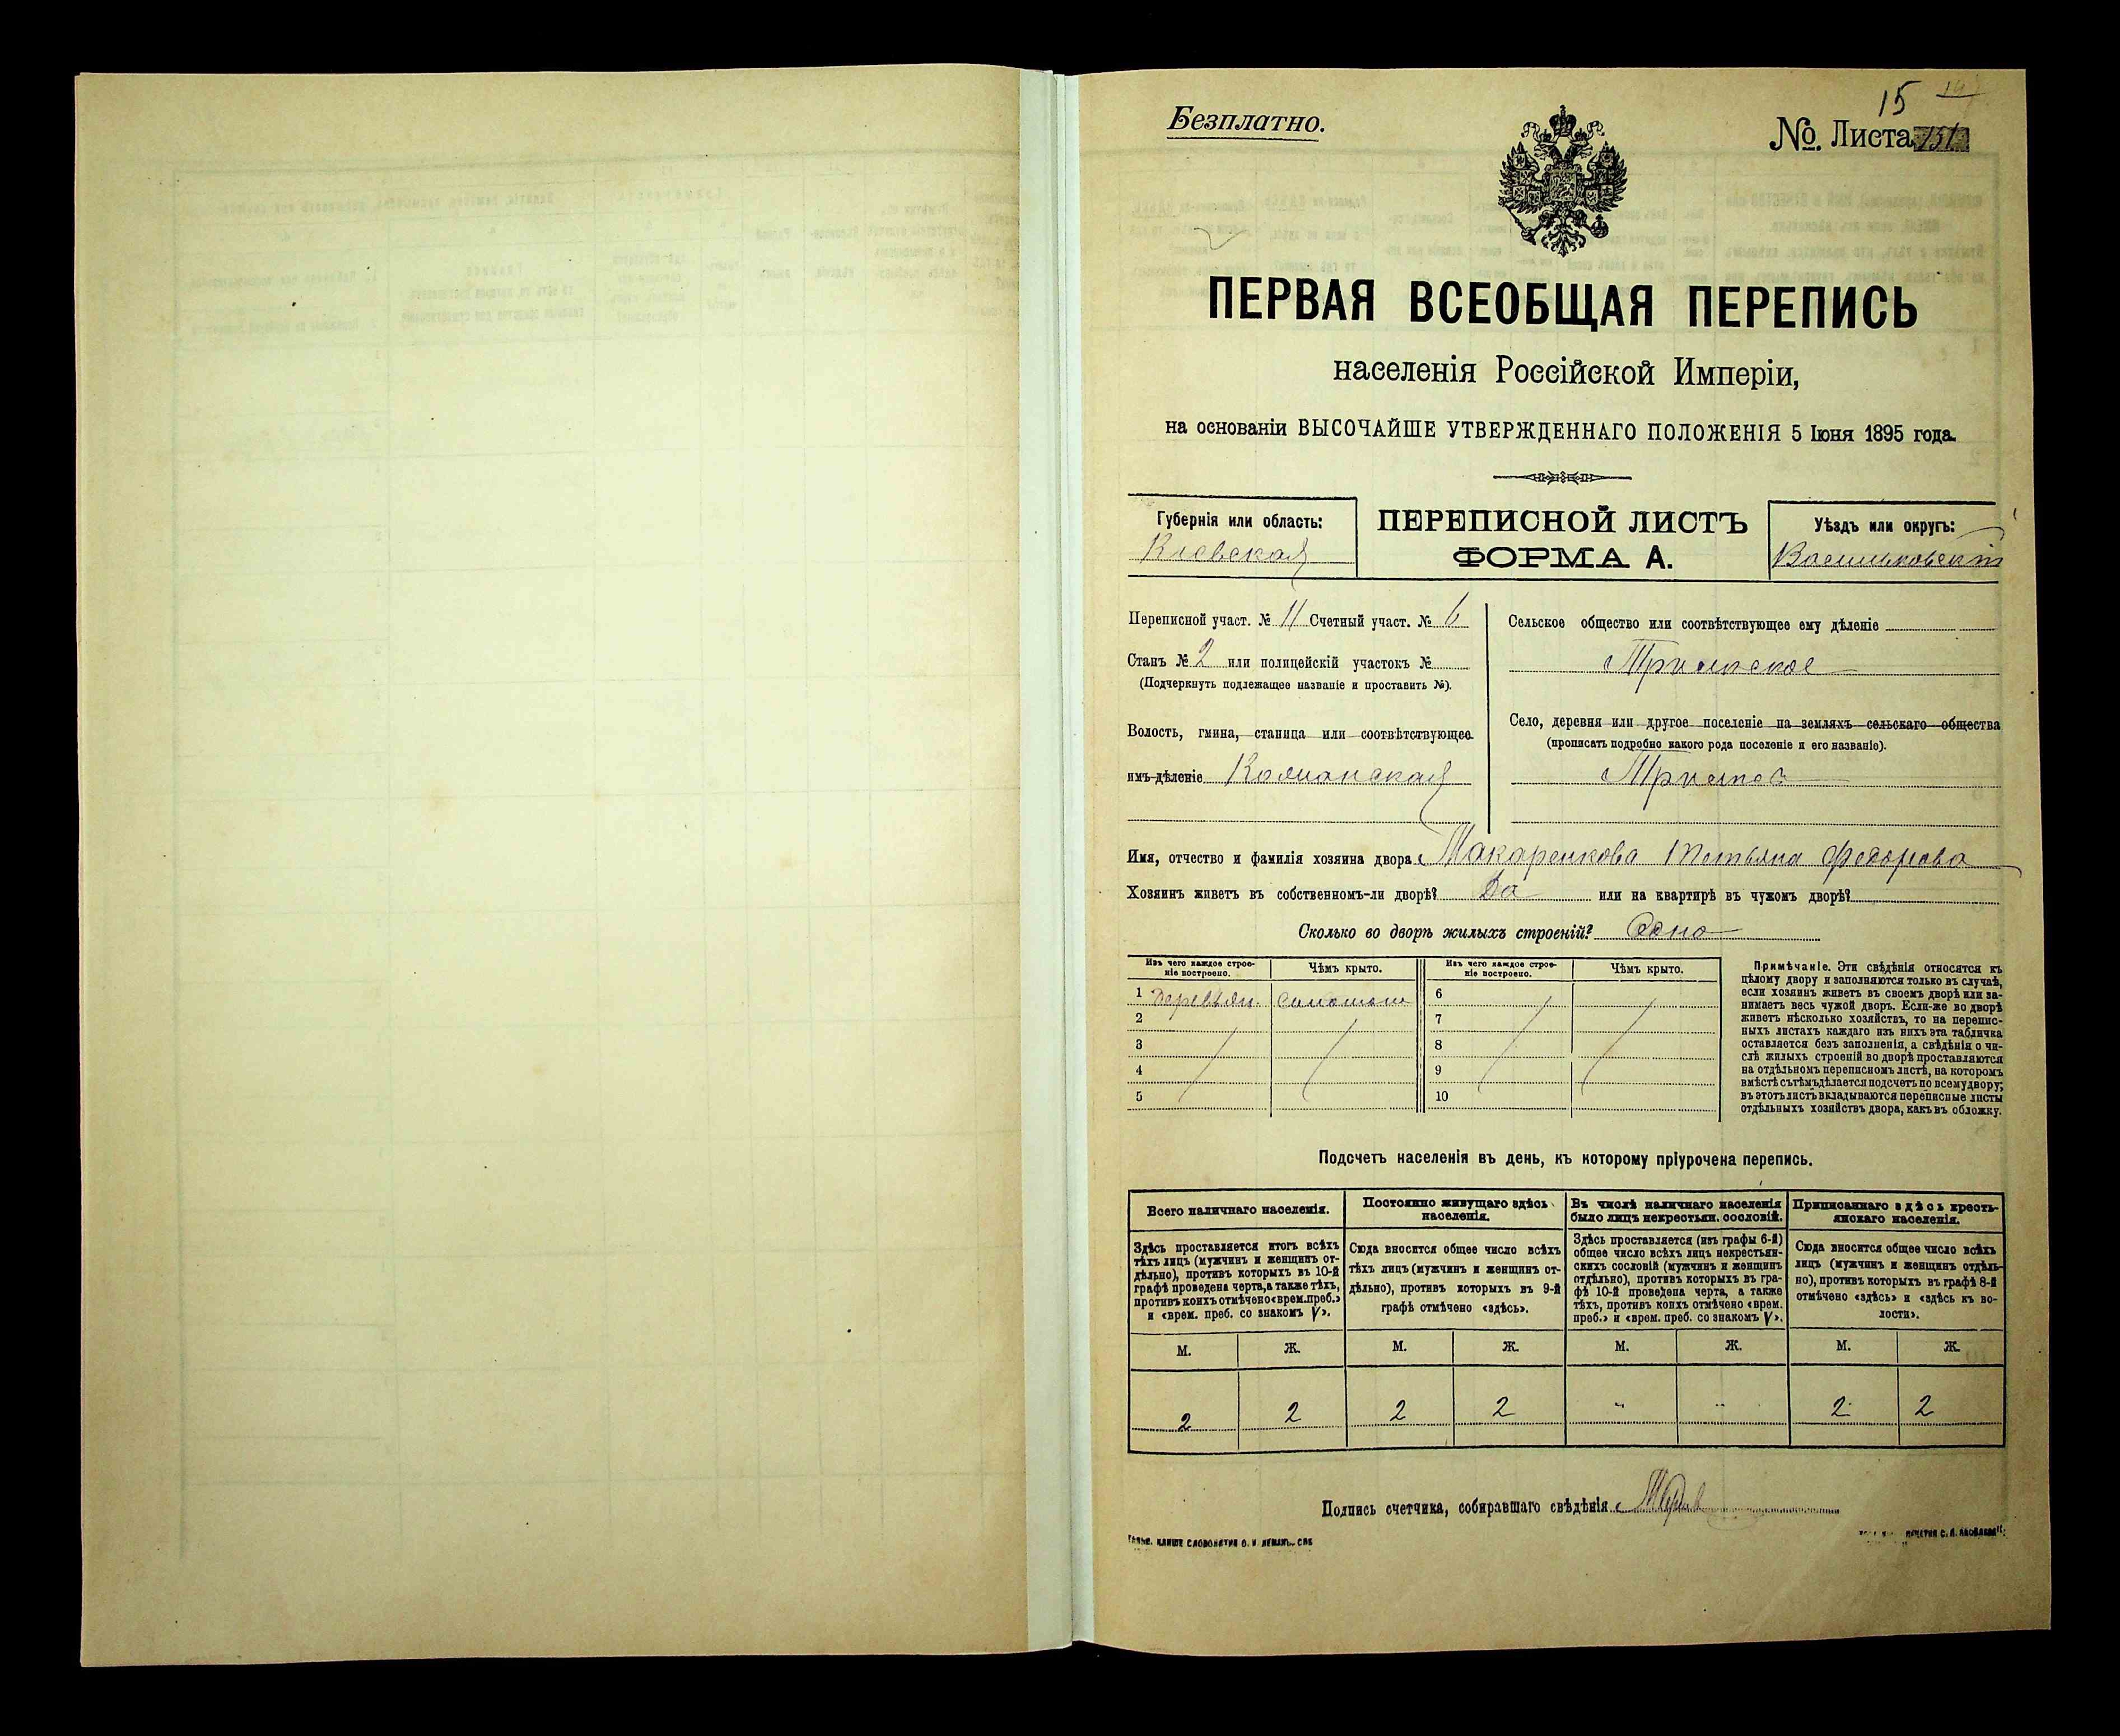 15
Безплатно.
№. Листа 151
ПЕРВАЯ ВСЕОБЩАЯ ПЕРЕПИСЬ
населенія Россійской Имперіи,
на основаніи ВЫСОЧАЙШЕ УТВЕРЖДЕННАГО ПОЛОЖЕНІЯ 5 Іюня 1895 года
Губернія или область:
Кіевская
ПЕРЕПИСНОЙ ЛИСТЪ
ФОРМА А.
Уѣздъ или округъ:
Васильковскій
Переписной участ. № 11 Счетный участ. № 6
Станъ № 2 или полицейскій участокъ №
(Подчеркнуть подлежащее названіе и проставить №).
Волость, гмина, станица или соотвѣтствующее
имъ дѣленіе Кошанская
Сельское общество или соотвѣтствующее ему дѣленіе
Село, деревня или другое поселеніе на земляхъ сельскаго общества
(прописать подробно какого рода поселеніе и его названіе).
Имя, отчество и фамилія хозяина двора Макаренкова Татьяна Федорова
Хозяинъ живетъ въ собственномъ-ли дворѣ? Да или на квартирѣ въ чужомъ дворѣ?
Сколько во дворѣ жилыхъ строеній? Одно
Изъ чего каждое строе-
ніе построено.
Чѣмъ крыто.
Изъ чего каждое строе-
ніе построено.
Чѣмъ крыто.
1 деревян. соломою 6
2 7
3 8
4 9
5 10
Примѣчаніе. Эти свѣдѣнія относятся къ
цѣлому двору и заполняются только въ случаѣ,
если хозяинъ живетъ въ своемъ дворѣ или за-
нимаетъ весь чужой дворъ. Если-же во дворѣ
живетъ нѣсколько хозяйствъ, то на перепис-
ныхъ листахъ каждаго изъ нихъ эта табличка
оставляется безъ заполненія, а свѣдѣнія о чи-
слѣ жилыхъ строеній во дворѣ проставляются
на отдѣльномъ переписномъ листѣ, на которомъ
вмѣстѣ съ тѣмъ дѣлается подсчетъ по всему двору;
въ этотъ листъ вкладываются переписные листы
отдѣльныхъ хозяйствъ двора, какъ въ обложку.
Подсчетъ населенія въ день, къ которому пріурочена перепись.
Всего наличнаго населенія.
Постоянно живущаго здѣсь
населенія.
Въ числѣ наличнаго населенія
было лицъ некрестьян. сословій.
Приписаннаго здѣсь кресть-
янскаго населенія.
Здѣсь проставляется итогъ всѣхъ
тѣхъ лицъ (мужчинъ и женщинъ от-
дѣльно), противъ которыхъ въ 10-й
графѣ проведена черта, а также тѣхъ,
противъ коихъ отмѣчено «врем. преб.»
и «врем. преб. со знакомъ V».
Сюда вносится общее число всѣхъ
тѣхъ лицъ (мужчинъ и женщинъ от-
дѣльно), противъ которыхъ въ 9-й
графѣ отмѣчено «здѣсь».
Здѣсь проставляется (изъ графы 6-й)
общее число всѣхъ лицъ некрестьян-
скихъ сословій (мужчинъ и женщинъ
отдѣльно), противъ которыхъ въ гра-
фѣ 10-й проведена черта, а также
тѣхъ, противъ коихъ отмѣчено «врем.
преб.» и «врем. преб. со знакомъ V».
Сюда вносится общее число всѣхъ
лицъ (мужчинъ и женщинъ отдѣль-
но), противъ которыхъ въ графѣ 8-й
отмѣчено «здѣсь» и «здѣсь къ во-
лости».
М. Ж. М. Ж. М. Ж. М. Ж.
2 2 2 2 " " 2 2
Подпись счетчика, собиравшаго свѣдѣнія